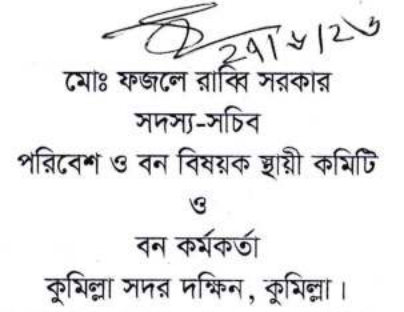 মোঃ ফজলে রাব্বি সরকার
সদস্য-সচিব
পরিবেশ ও বন বিষয়ক স্থায়ী কমিটি
ও
বন কর্মকর্তা
কুমিল্লা সদর দক্ষিন , কুমিল্লা ।